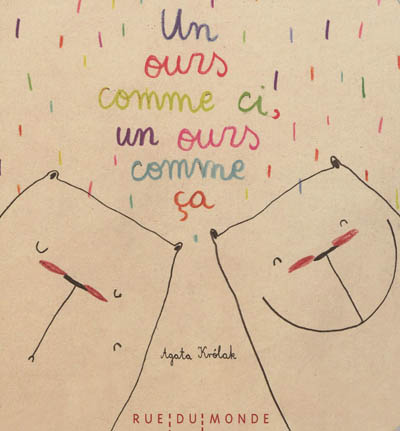 Un
ours
comme ci,
un ours
comme
ça
Agata Królak
RUE DU MONDE